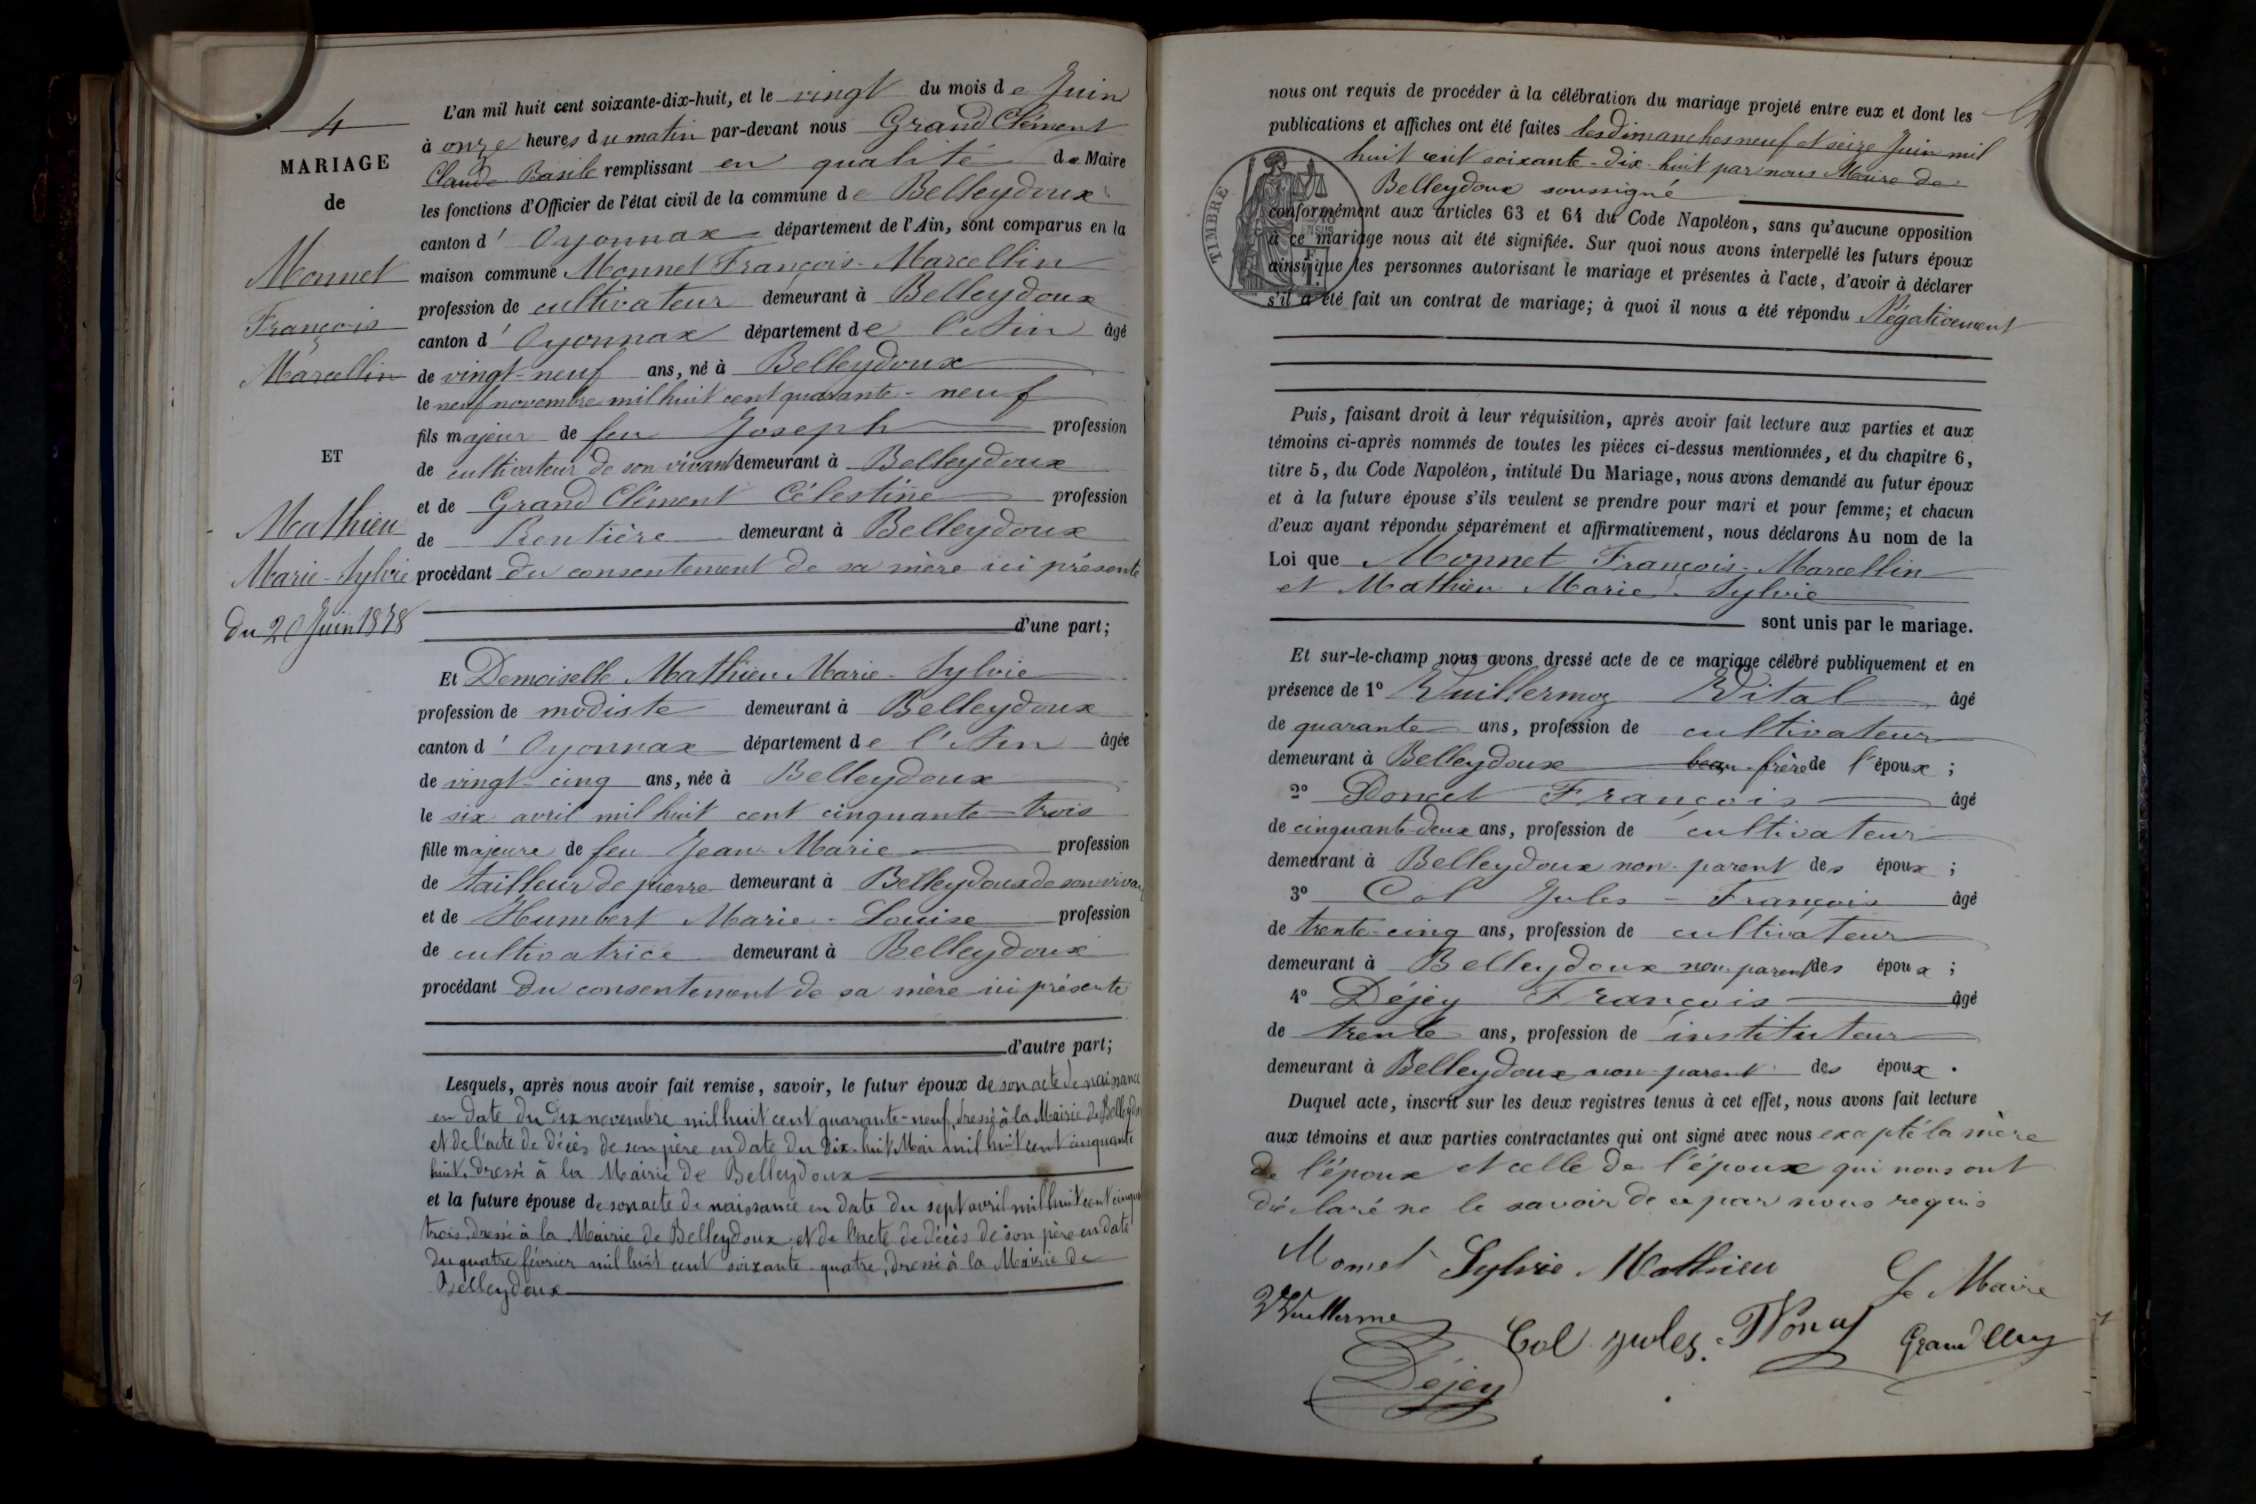 4
MARIAGE
de
Monnet
François
Marcellin
ET
Mathieu
Marie-Sylvie
du 20 Juin 1878
L'an mil huit cent soixante-dix-huit, et le vingt du mois de Juin
à onze heures du matin par-devant nous Grand Clément
Claude Basile remplissant en qualité de Maire
les fonctions d'Officier de l'état civil de la commune de Belleydoux
canton d' Oyonnax département de l'Ain, sont comparus en la
maison commune Monnet François-Marcellin
profession de cultivateur demeurant à Belleydoux
canton d' Oyonnax département de l'Ain âgé
de vingt-neuf ans, né à Belleydoux
le neuf novembre mil huit cent quarante-neuf
fils majeur de feu Joseph profession
de cultivateur de son vivant demeurant à Belleydoux
et de Grand Clément Célestine profession
de Rentière demeurant à Belleydoux
procédant du consentement de sa mère ici présente
d'une part;
Et Demoiselle Mathieu Marie-Sylvie
profession de modiste demeurant à Belleydoux
canton d' Oyonnax département de l'Ain âgée
de vingt-cinq ans, née à Belleydoux
le six avril mil huit cent cinquante-trois
fille majeure de feu Jean-Marie profession
de tailleur de pierre demeurant à Belleydoux de son viva
et de Humbert Marie-Louise profession
de cultivatrice demeurant à Belleydoux
procédant du consentement de sa mère ici présente
d'autre part;
Lesquels, après nous avoir fait remise, savoir, le futur époux de son acte de naissance
en date du dix novembre mil huit cent quarante-neuf, dressé à la Mairie de Belleydou
et de l'acte de décès de son père en date du dix-huit Mai mil huit cent cinquante
huit, dressé à la Mairie de Belleydoux
et la future épouse de son acte de naissance en date du sept avril mil huit cent cinqua
trois, dressé à la Mairie de Belleydoux et de l'acte de décès de son père en date
du quatre février mil huit cent soixante-quatre, dressé à la Mairie de
Belleydoux
nous ont requis de procéder à la célébration du mariage projeté entre eux et dont les
publications et affiches ont été faites les dimanches neuf et seize Juin mil
huit cent soixante-dix-huit par nous Maire de
Belleydoux soussigné
TIMBRE
conformément aux articles 63 et 64 du Code Napoléon, sans qu'aucune opposition
à ce mariage nous ait été signifiée. Sur quoi nous avons interpellé les futurs époux
ainsi que les personnes autorisant le mariage et présentes à l'acte, d'avoir à déclarer
s'il a été fait un contrat de mariage; à quoi il nous a été répondu Négativement
Puis, faisant droit à leur réquisition, après avoir fait lecture aux parties et aux
témoins ci-après nommés de toutes les pièces ci-dessus mentionnées, et du chapitre 6,
titre 5, du Code Napoléon, intitulé Du Mariage, nous avons demandé au futur époux
et à la future épouse s'ils veulent se prendre pour mari et pour femme; et chacun
d'eux ayant répondu séparément et affirmativement, nous déclarons Au nom de la
Loi que Monnet François-Marcellin
et Mathieu Marie-Sylvie
sont unis par le mariage.
Et sur-le-champ nous avons dressé acte de ce mariage célébré publiquement et en
présence de 1° Vuillermoz Vital âgé
de quarante ans, profession de cultivateur
demeurant à Belleydoux beau-frère de l'époux ;
2° Poncet François âgé
de cinquante-deux ans, profession de cultivateur
demeurant à Belleydoux non-parent des époux ;
3° Col Jules-François âgé
de trente-cinq ans, profession de cultivateur
demeurant à Belleydoux non-parent des époux ;
4° Déjey François âgé
de trente ans, profession de instituteur
demeurant à Belleydoux non-parent des époux.
Duquel acte, inscrit sur les deux registres tenus à cet effet, nous avons fait lecture
aux témoins et aux parties contractantes qui ont signé avec nous excepté la mère
de l'époux et celle de l'épouse qui nous ont
déclaré ne le savoir de ce par nous requis
Monnet Sylvie Mathieu
Le Maire
Col jules.
Grand Clém
Déjey